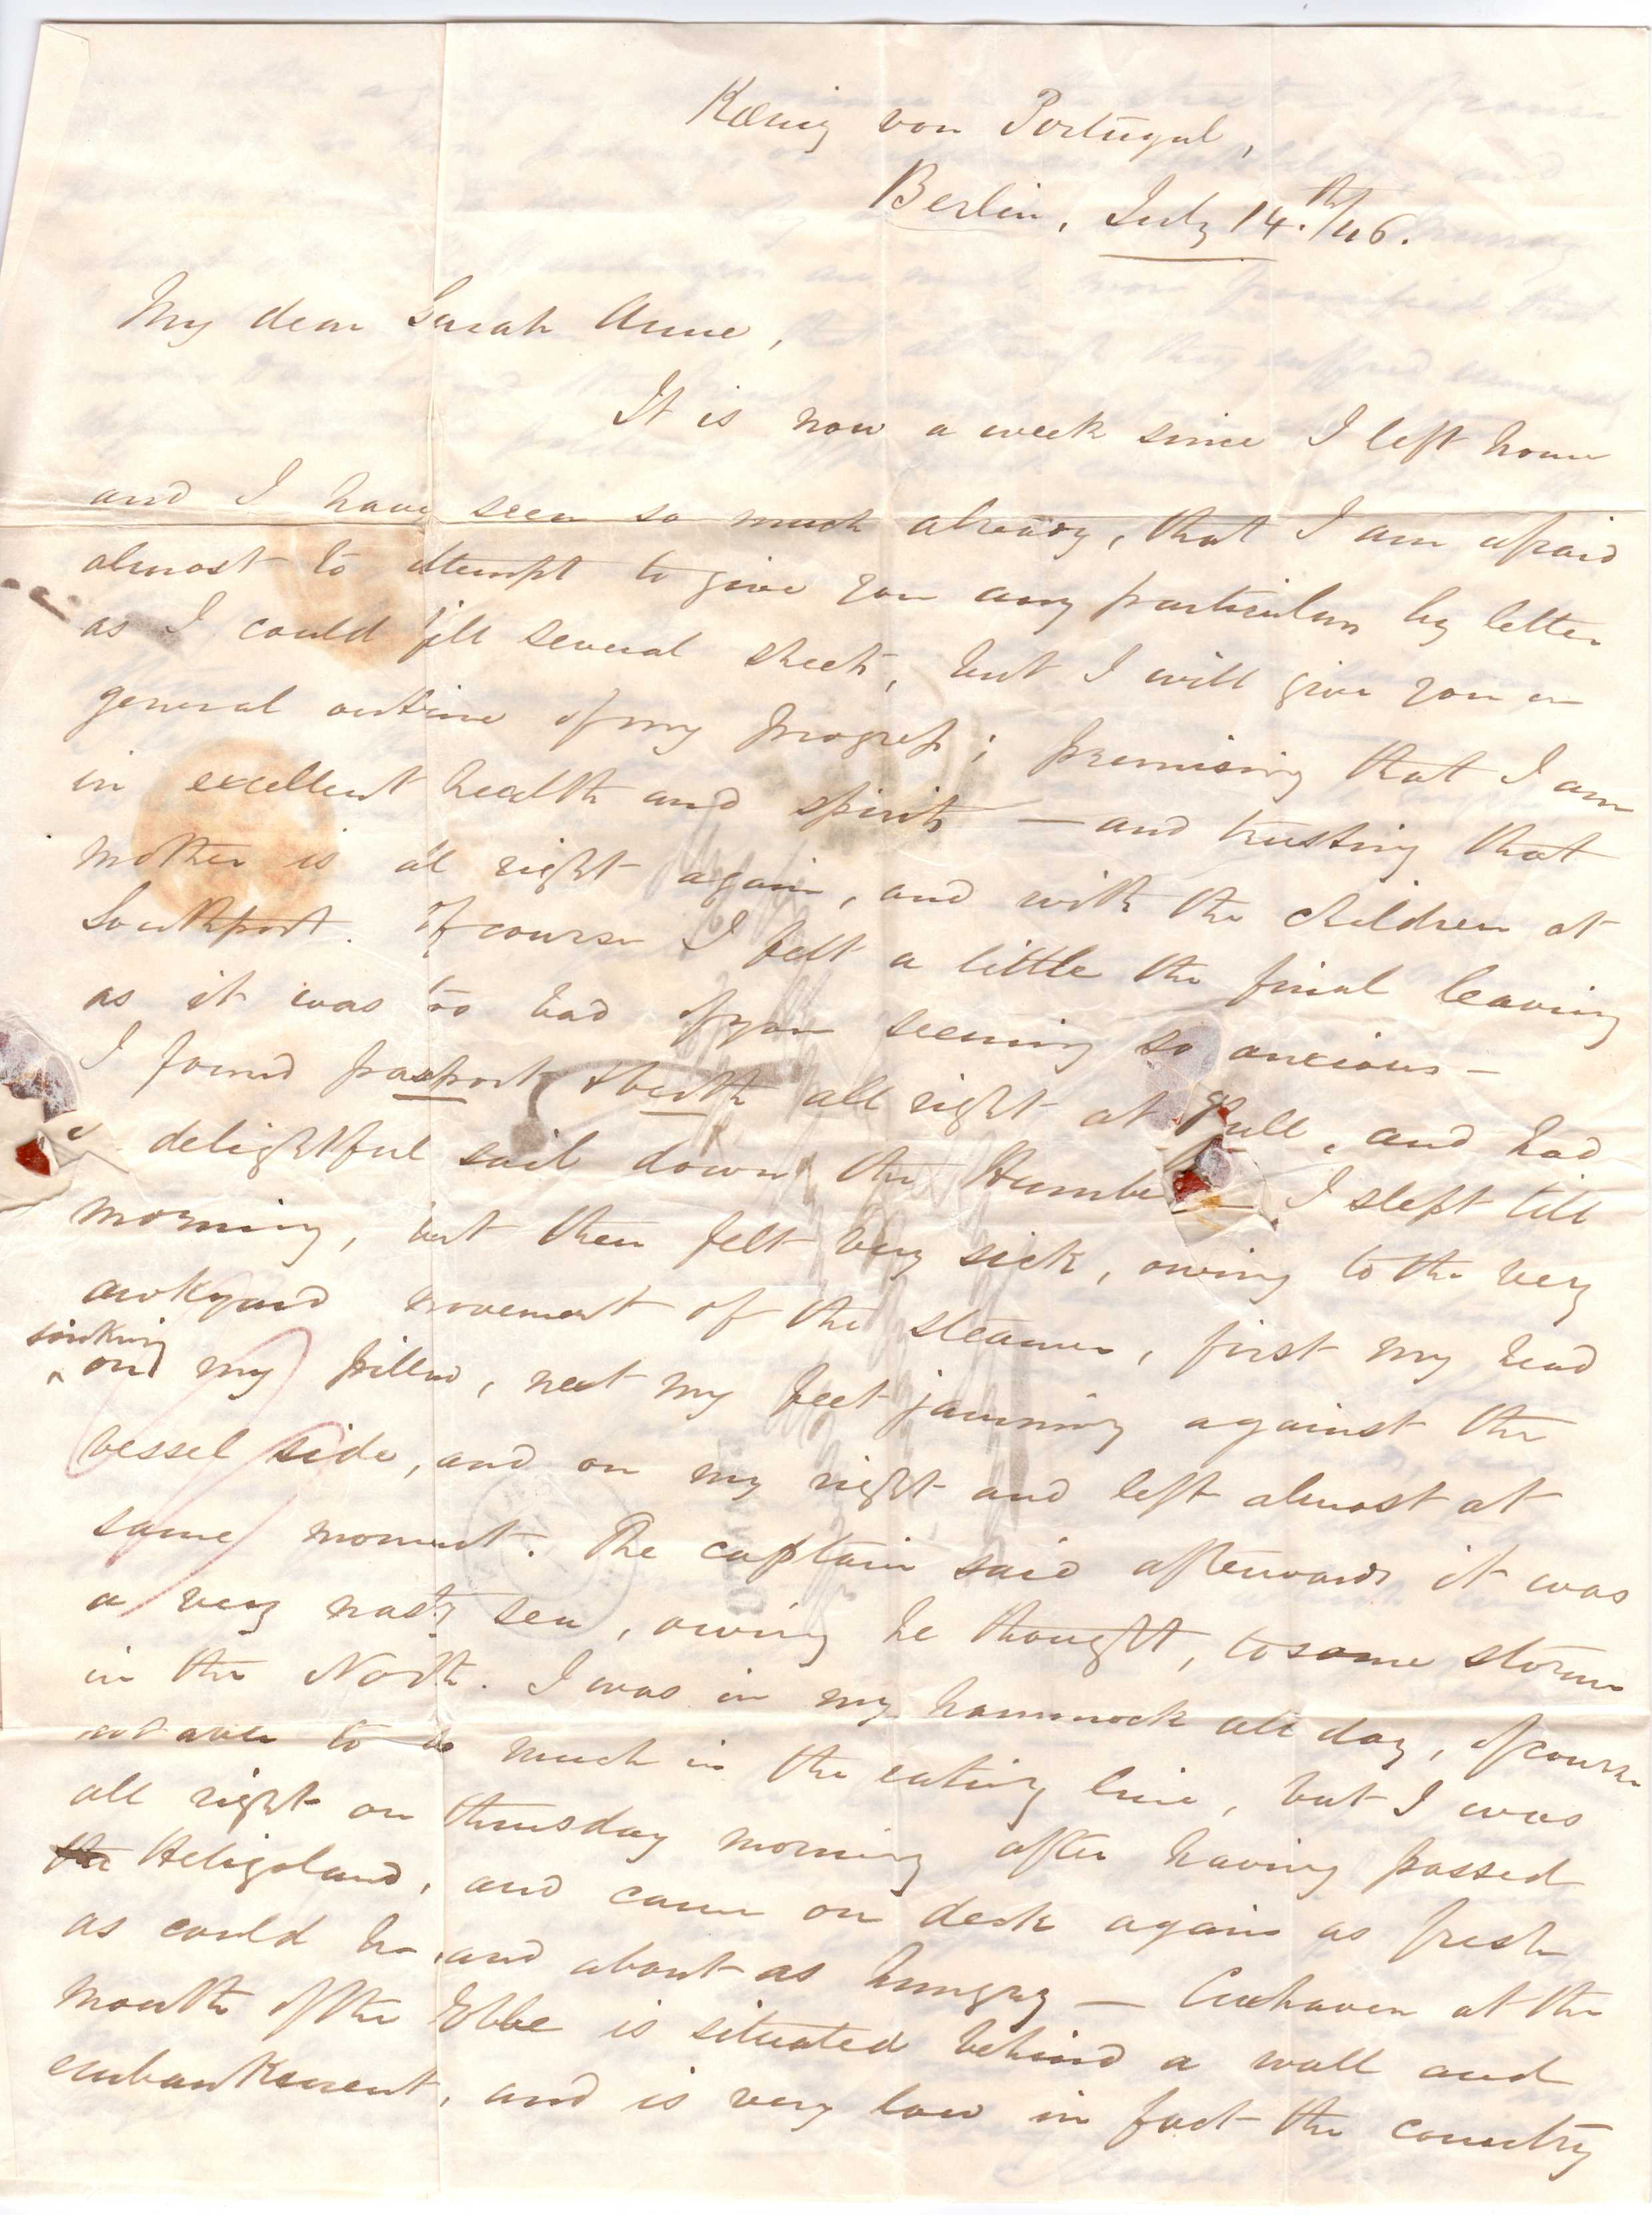 Kœnig von Portugal,
Berlin, July 14.th/46.
My dear Sarah Anne,
It is now a week since I left home
and I have seen so much already, that I am afraid
almost to attempt to give you any particulars by letter
as I could fill several sheets, but I will give you a
general outline of my progress; premising that I am
in excellent health and spirits — and trusting that
mother is all right again, and with the children at
Southport. Of course I felt a little the final leaving
as it was too bad of you seeming so anxious —
I found passport & berth all right at Hull, and had
a delightful sail down the Humber — I slept till
morning, but then felt very sick, owing to the very
awkward movement of the steamer, first my head
sinking
on my pillow, next my feet jamming against the
vessel side, and on my right and left almost at
same moment. The captain said afterwards it was
a very nasty sea, owing he thought, to some storm
in the North. I was in my hammock all day, of course
not able to do much in the eating line, but I was
all right on thursday morning after having passed
the Heligoland, and came on deck again as fresh
as could be, and about as hungry — Cuxhaven at the
mouth of the Elbe is situated behind a wall and
embankment, and is very low in fact the country